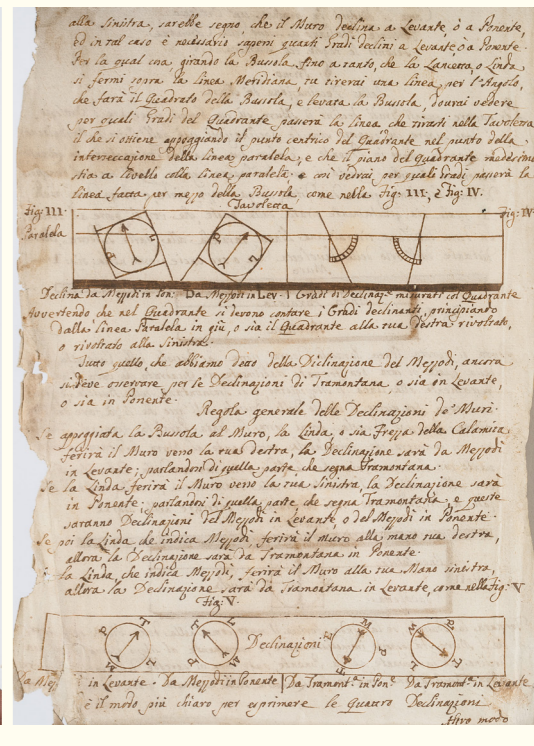 alla Sinistra, sarebbe segno che il Muro declina a Levante, ò a Ponente,
ed in tal caso è necessario sapersi quanti Gradi declini a Levante, ò a Ponente.
Per la qual cosa girando la Bussola fino a tanto, che la Lancetta, o Linda
si fermi sopra la linea Meridiana, tu tirerai una linea per l'Angolo,
che farà il Quadrato della Bussola, e levata la Bussola, dourai vedere
per quali Gradi del Quadrante passerà la linea che tirasti nella Tavoletta
il che si ottiene appoggiando il punto centrico del Quadrante nel punto della
intersecazione della linea paralela, e che il piano del Quadrante medesimo
stia a livello colla linea paralela, e così vedrai per quali Gradi passerà la
linea fatta per mezzo della Bussola, come nella Fig: III, e Fig: IV.
Fig: III. Tavoletta Fig: IV
Paralela
P L P L
Declina da Mezzodì in Pon: Da Mezzodì in Lev: I Gradi di Declinaz.e misurati col Quadrante
Avvertendo che nel Quadrante si devono contare i Gradi declinanti, principiando
dalla linea Paralela in giù, o sia il Quadrante alla tua destra rivoltato,
o rivoltato alla Sinistra.
Tutto quello, che abbiamo detto della Diclinazione del Mezzodì, ancora
si deve osservare per le Declinazioni di Tramontana o sia in Levante,
o sia in Ponente.
Regola generale delle Declinazioni de' Muri.
Se appoggiata la Bussola al Muro, la Linda o sia Frezza della Calamita
ferirà il Muro verso la tua destra, la Declinazione sarà da Mezzodì
in Levante; parlandosi di quella parte che segna Tramontana.
Se la Linda ferirà il Muro verso la tua Sinistra, la Declinazione sarà
in Ponente. parlandosi di quella parte che segna Tramontana, e queste
saranno Declinazioni del Mezzodì in Levante, o del Mezzodì in Ponente.
Se poi la Linda che indica Mezzodì ferirà il muro alla mano tua destra,
allora la Declinazione sarà da Tramontana in Ponente.
la Linda, che indica Mezzodì, ferirà il Muro alla tua Mano sinistra,
allora la Declinazione sarà da Tramontana in Levante, come nella Fig: V
Fig: V.
P T M L T L P M Declinazioni P T M R T L
in Levante. Da Mezzodì in Ponente Da Tramont.a in Pon.e Da Tramont.a in Levante
è il modo più chiaro per esprimere le Quattro Declinazioni
Altro modo